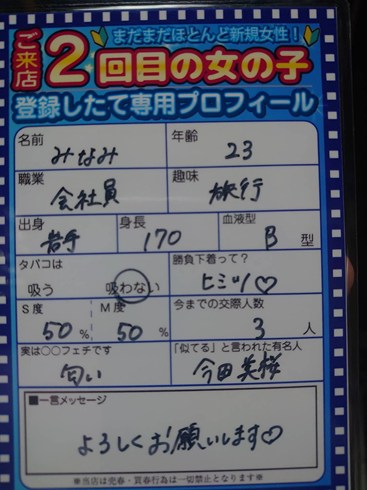 まだまだほとんど新規女性！
ご来店2回目の女の子
登録したて専用プロフィール
名前 みなみ 年齢 23
職業 会社員 趣味 旅行
出身 岩手 身長 170 血液型 B 型
タバコは 勝負下着って？
吸う 吸わない ヒミツ♡
S度 M度 今までの交際人数
50 % 50 % 3 人
実は〇〇フェチです 「似てる」と言われた有名人
匂い 今田美桜
■一言メッセージ
よろしくお願いします♡
※当店は売春・買春行為は一切禁止となります※